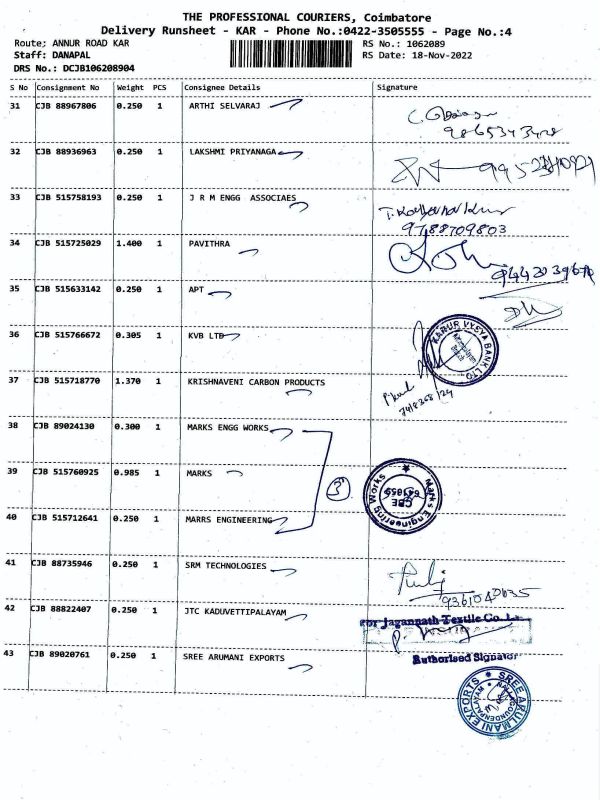 THE PROFESSIONAL COURIERS, Coimbatore
Delivery Runsheet - KAR - Phone No.:0422-3505555 - Page No.:4
Route; ANNUR ROAD KAR RS No.: 1062089
Staff: DANAPAL RS Date: 18-Nov-2022
DRS No.: DCJB106208904
S No Consignment No Weight PCS Consignee Details Signature
31 CJB 88967806 0.250 1 ARTHI SELVARAJ
9865343428
32 CJB 88936963 0.250 1 LAKSHMI PRIYANAGA
33 CJB 515758193 0.250 1 J R M ENGG ASSOCIAES
9788709803
34 CJB 515725029 1.400 1 PAVITHRA
35 CJB 515633142 0.250 1 APT
36 CJB 515766672 0.305 1 KVB LTD
KARUR VYSYA BANK LTD
37 CJB 515718770 1.370 1 KRISHNAVENI CARBON PRODUCTS
38 CJB 89024130 0.300 1 MARKS ENGG WORKS
39 CJB 515760925 0.985 1 MARKS
3
Marks Engineering Works
CBE
40 CJB 515712641 0.250 1 MARRS ENGINEERING
41 CJB 88735946 0.250 1 SRM TECHNOLOGIES
42 CJB 88822407 0.250 1 JTC KADUVETTIPALAYAM
For Jagannath Textile Co.
Authorised Signator
43 CJB 89020761 0.250 1 SREE ARUMANI EXPORTS
SREE ARULMANI EXPORTS